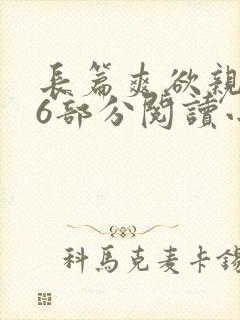 長篇爽欲親
6部分閱讀
科馬克麦卡錫